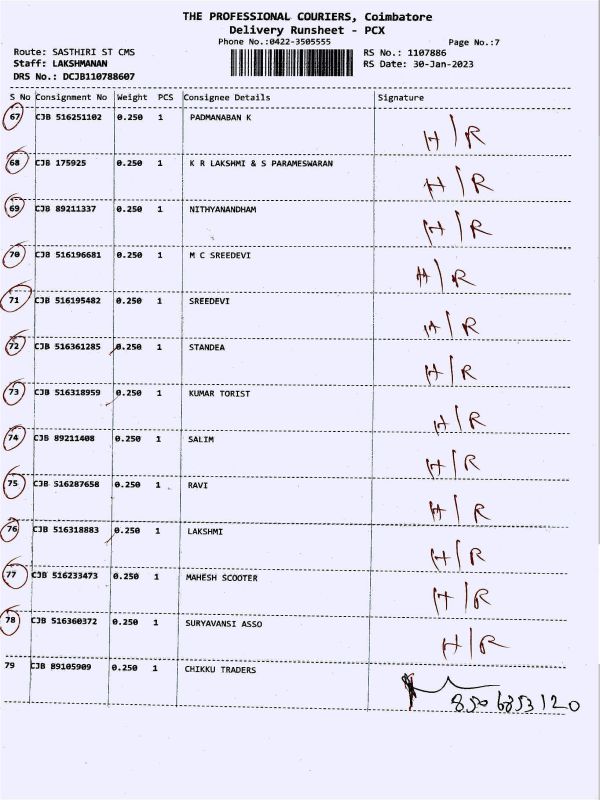 THE PROFESSIONAL COURIERS, Coimbatore
Delivery Runsheet - PCX
Phone No.:0422-3505555
Page No.:7
Route: SASTHIRI ST CMS
RS No.: 1107886
Staff: LAKSHMANAN
RS Date: 30-Jan-2023
DRS No.: DCJB110788607
S No Consignment No Weight PCS Consignee Details Signature
67 CJB 516251102 0.250 1 PADMANABAN K H/R
68 CJB 175925 0.250 1 K R LAKSHMI & S PARAMESWARAN H/R
69 CJB 89211337 0.250 1 NITHYANANDHAM H/R
70 CJB 516196681 0.250 1 M C SREEDEVI H/R
71 CJB 516195482 0.250 1 SREEDEVI H/R
72 CJB 516361285 0.250 1 STANDEA H/R
73 CJB 516318959 0.250 1 KUMAR TORIST H/R
74 CJB 89211408 0.250 1 SALIM H/R
75 CJB 516287658 0.250 1 RAVI H/R
76 CJB 516318883 0.250 1 LAKSHMI H/R
77 CJB 516233473 0.250 1 MAHESH SCOOTER H/R
78 CJB 516360372 0.250 1 SURYAVANSI ASSO H/R
79 CJB 89105909 0.250 1 CHIKKU TRADERS
8506853120